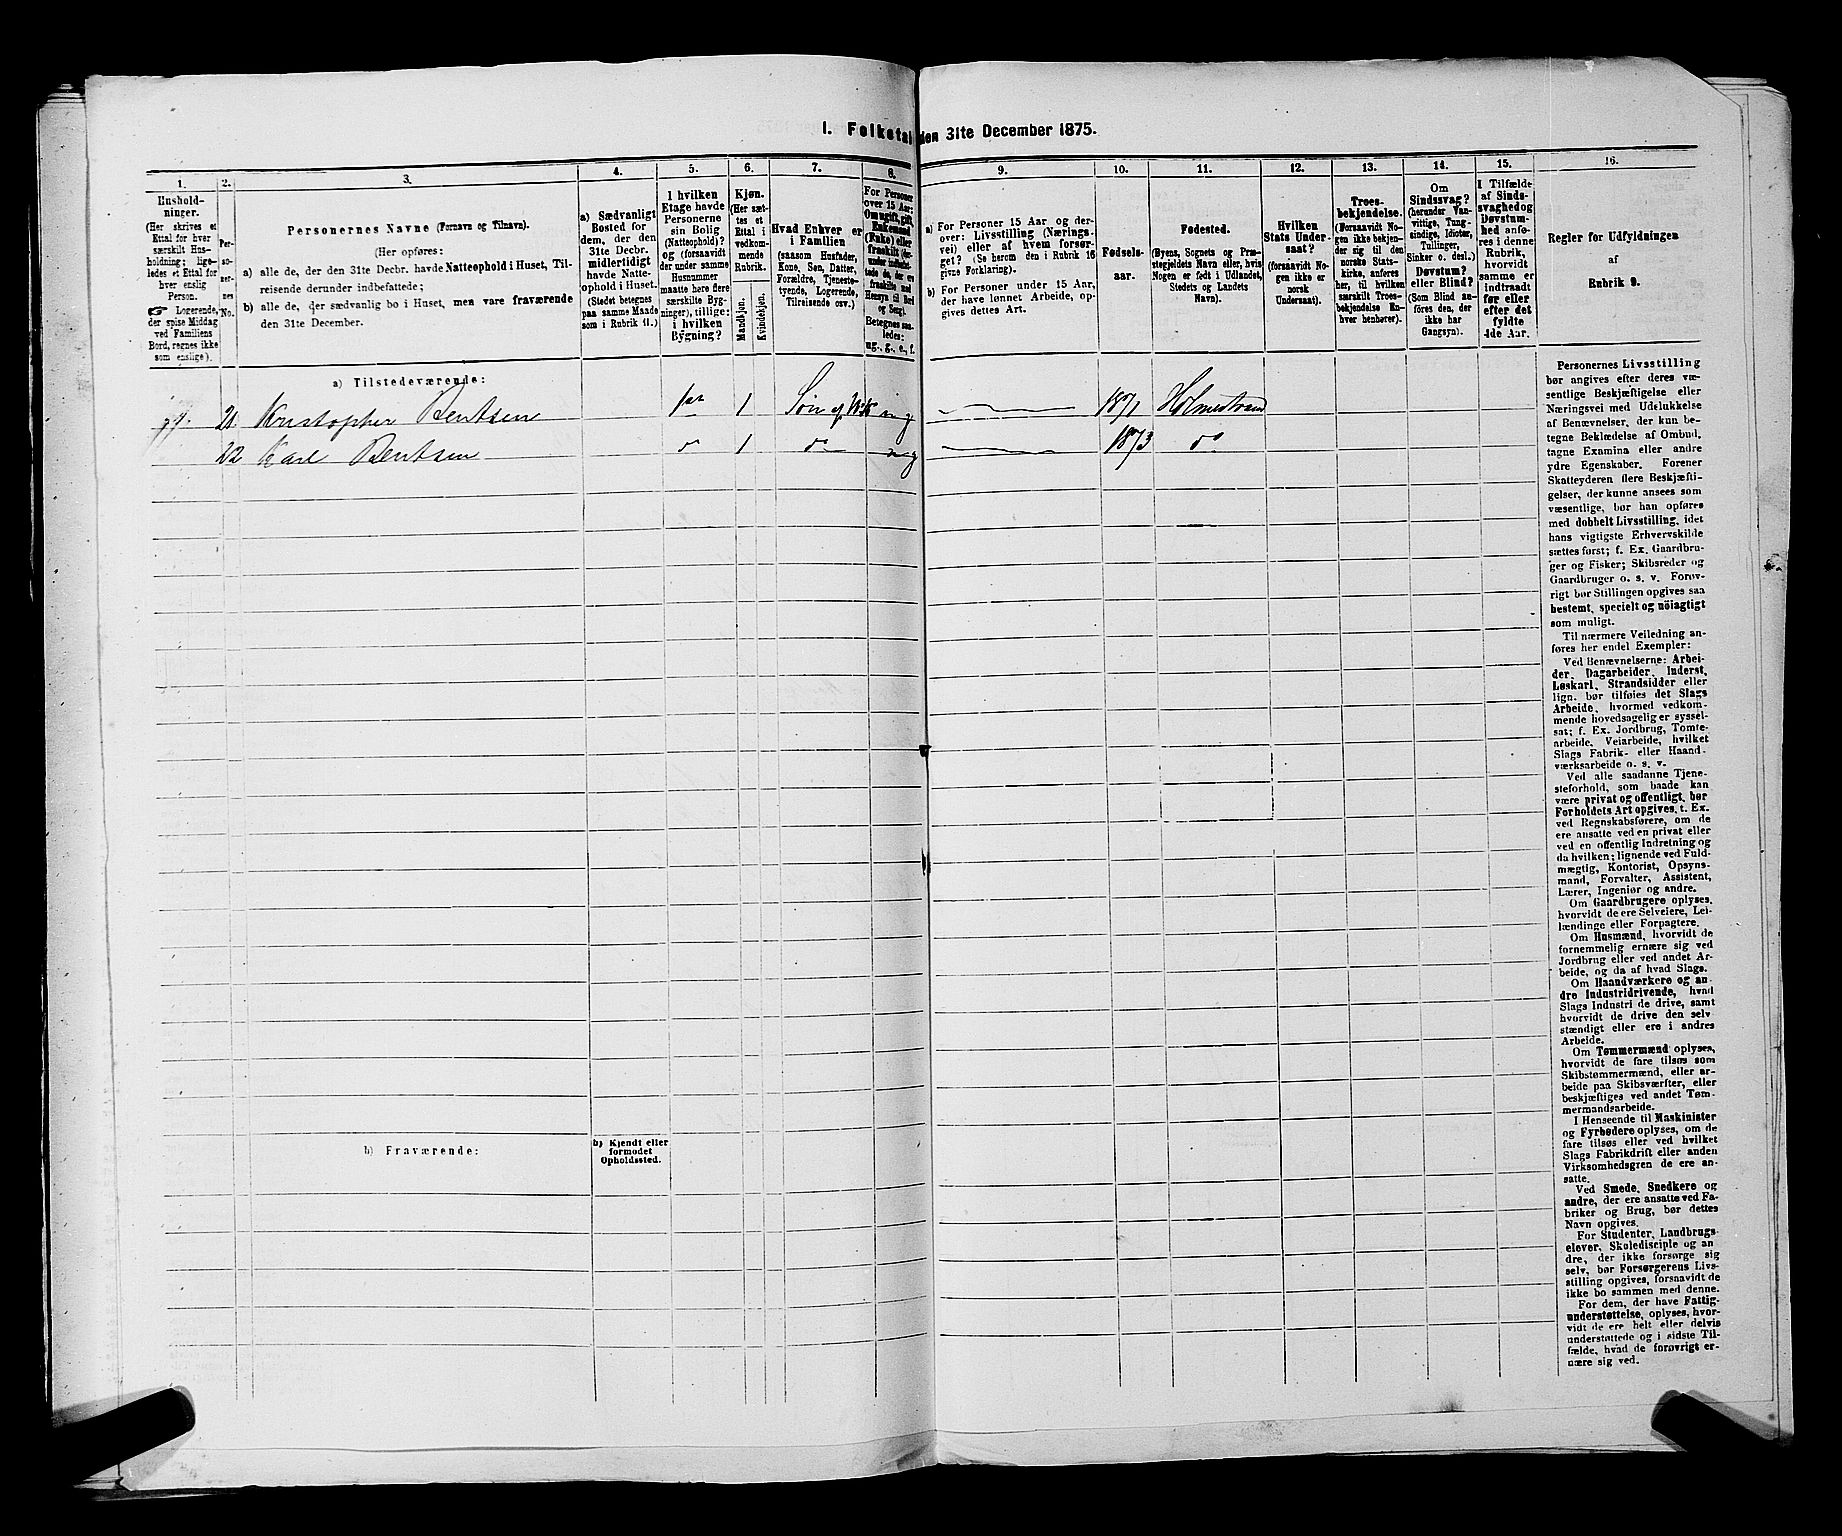 I. Folketal den 31te December 1875.
1.
2.
3.
4.
5.
6.
7.
8.
9.
10.
11.
12.
13.
14.
15.
16.
Husholdninger.
(Her skrives et
Ettal for hver
særskilt Husholdning; ligeledes et Ettal for
hver enslig
Person.
☛ Logerende,
der spise Middag
ved Familiens
Bord, regnes ikke
som enslige).
Personernes No.
Personernes Navne (Fornavn og Tilnavn).
(Her opføres:
a) alle de, der den 31te Decbr. havde Natteophold i Huset, Tilreisende derunder indbefattede;
b) alle de, der sædvanlig bo i Huset, men vare fraværende
den 31te December.
a) Sædvanligt
Bosted for
dem, der den
31te Decbr.
midlertidigt
havde Natteophold i Huset.
(Stedet betegnes
paa samme Maade
som i Rubrik 11.)
I hvilken
Etage havde
Personerne
sin Bolig
(Natteophold)?
og (forsaavidt
der under samme
Husnummer
maatte høre flere
særskilte Bygninger), tillige:
i hvilken
Bygning?
Kjøn.
(Her sættes et
Ettal i
vedkommende
Rubrik.
Mandkjøn.
Kvindekjøn.
Hvad Enhver er
i Familien
(saasom Husfader,
Kone, Søn, Datter,
Forældre, Tjenestetyende, Logerende,
Tilreisende osv.)
For Personer
over 15 Aar:
Om ugift, gift,
Enkemand
(Enke) eller
fraskilt (derunder indbefattede de, der ere
fraskilte med
Hensyn til Bord
og Seng).
Betegnes saaledes:
ug., g., e., f.
a) For Personer 15 Aar og derover: Livsstilling (Næringsvei) eller af hvem forsørget? (Se herom den i Rubrik 16
givne Forklaring).
b) For Personer under 15 Aar,
der have lønnet Arbeide, opgives dettes Art.
Fødselsaar.
Fødested.
(Byens, Sognets og Præstegjeldets Navn eller, hvis
Nogen er født i Udlandet,
Stedets og Landets
Navn).
Hvilken
Stats Undersaat?
(forsaavidt Nogen ikke er
norsk
Undersaat).
Troesbekjendelse.
(Forsaavidt Nogen ikke bekjender sig til den
norske Statskirke, anføres
her, til hvilken
særskilt Troesbekjendelse Enhver henhører).
Om
Sindssvag?
(herunder Vanvittige, Tungsindige, Idioter,
Tullinger,
Sinker o. desl.)
Døvstum?
eller Blind?
(Som Blind anføres den, der
ikke har
Gangsyn).
I Tilfælde
af Sindssvaghed og
Døvstumhed anføres i denne
Rubrik,
hvorvidt
samme er
indtraadt
før eller
efter det
fyldte
4de Aar.
Regler for Udfyldningen
af
Rubrik 9.
a) Tilstedeværende:
21 Kristopher Bentsen 1ste 1 Søn af ug 1871 Holmestrand
22 Karl Bentsen do 1 do ug 1873 do
b) Fraværende:
b) Kjendt eller
formodet
Opholdssted.
Personernes Livsstilling
bør angives efter deres væsentlige Beskjæftigelse eller
Næringsvei med Udelukkelse
af Benævnelser, der kun betegne Beklædelse af Ombud,
tagne Examina eller andre
ydre Egenskaber. Forener
Skatteyderen flere Beskjæftigelser, der kunne ansees som
væsentlige, bør han opføres
med dobbelt Livsstilling, idet
hans vigtigste Erhvervskilde
sættes først; f. Ex. Gaardbruger og Fisker; Skibsreder og
Gaardbruger o. s. v. Forøvrigt bør Stillingen opgives saa
bestemt, specielt og nöiagtigt
som muligt.
Til nærmere Veiledning anføres her endel Exempler:
Ved Benævnelserne: Arbeider, Dagarbeider, Inderst,
Løskarl, Strandsidder eller
lign. bør tilføies det Slags
Arbeide, hvormed vedkommende hovedsagelig er sysselsat; f. Ex. Jordbrug, Tomtearbeide, Veiarbeide, hvilket
Slags Fabrik- eller Haandværksarbeide o. s. v.
Ved alle saadanne Tjenesteforhold, som baade kan
være privat og offentligt, bør
Forholdets Art opgives, t. Ex.
ved Regnskabsførere, om de
ere ansatte ved en privat eller
ved en offentlig Indretning og
da hvilken; lignende ved Fuldmægtig, Kontorist, Opsynsmand, Forvalter, Assistent,
Lærer, Ingeniør og andre.
Om Gaardbrugere oplyses,
hvorvidt de ere Selveiere, Leilændinge eller Forpagtere.
Om Husmænd, hvorvidt de
fornemmelig ernære sig ved
Jordbrug eller ved andet Arbeide, og da af hvad Slags.
Om Haandværkere og andre Industridrivende, hvad
Slags Industri de drive, samt
hvorvidt de drive den selvstændigt eller ere i andres
Arbeide.
Om Tømmermænd oplyses,
hvorvidt de fare tilsøs som
Skibstømmermænd, eller arbeide paa Skibsværfter, eller
beskjæftiges ved andet Tømmermandsarbeide.
I Henseende til Maskinister
og Fyrbødere oplyses, om de
fare tilsøs eller ved hvilket
Slags Fabrikdrift eller anden
Virksomhedsgren de ere ansatte.
Ved Smede, Snedkere og
andre, der ere ansatte ved Fabriker og Brug, bør dettes
Navn opgives.
For Studenter, Landbrugselever, Skoledisciple og andre, der ikke forsørge sig
selv, bør Forsørgerens Livsstilling opgives, forsaavidt de
ikke bo sammen med denne.
For dem, der have Fattigunderstøttelse, oplyses, hvorvidt de ere helt eller delvis
understøttede og i sidste Tilfælde, hvad de forøvrigt ernære sig ved.